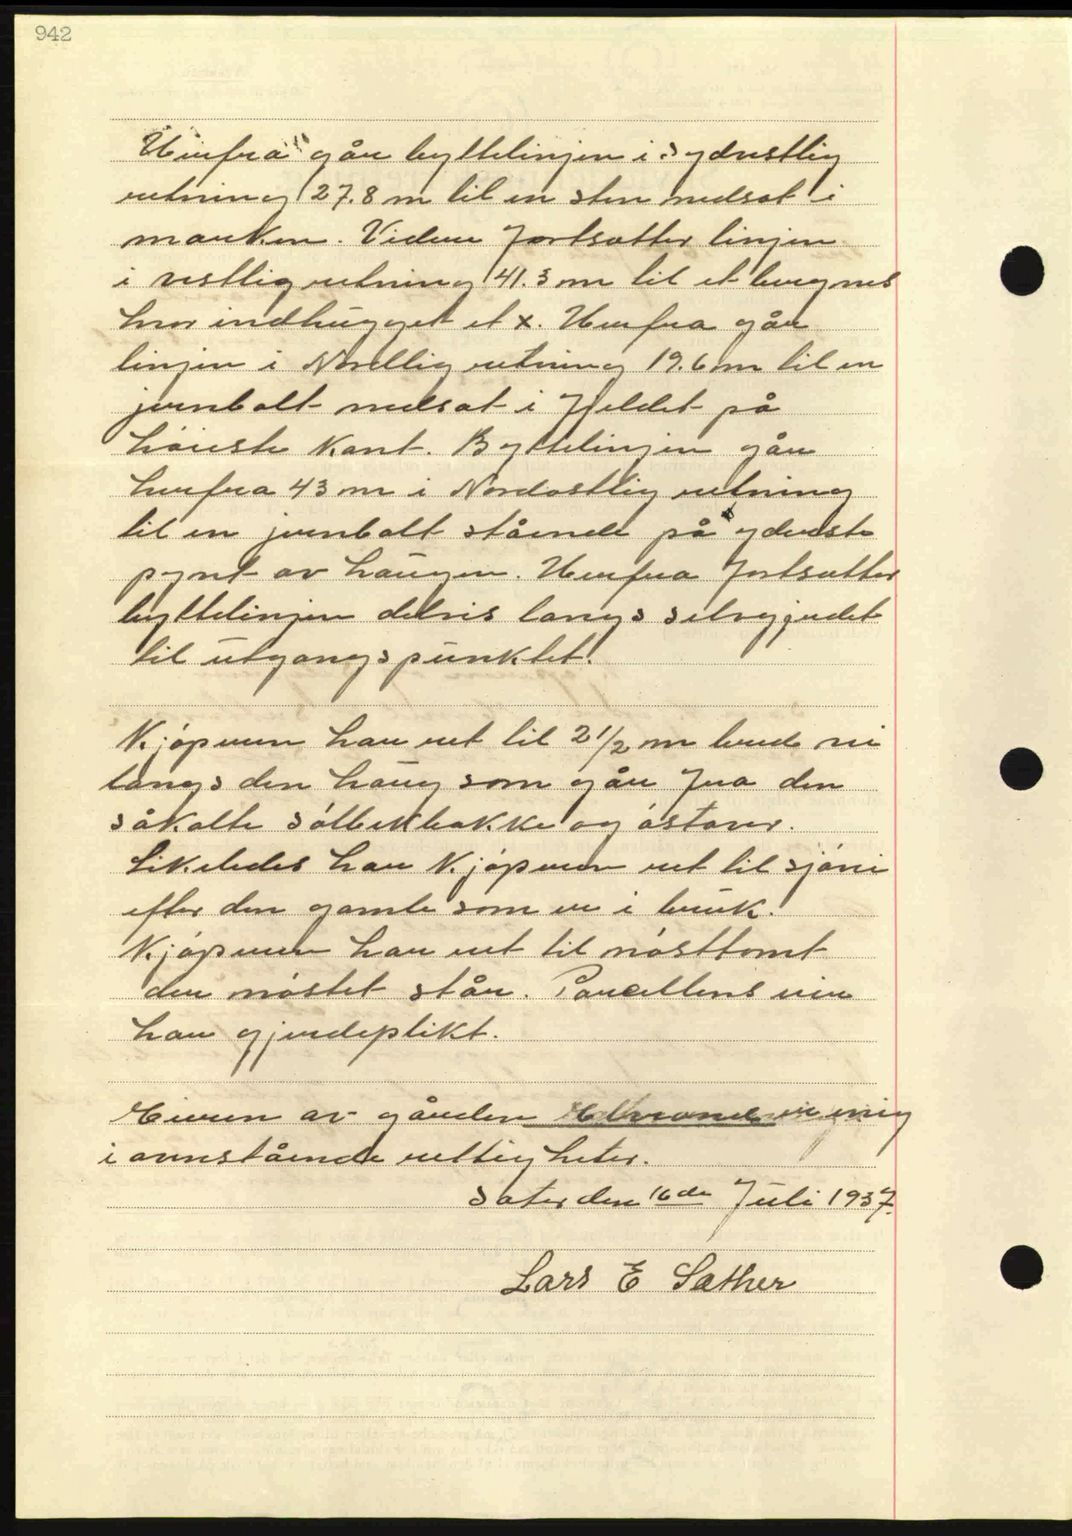 942
Herfra går byttelinjen i sydvestlig
retning 27.8 m til en sten nedsat i
marken. Videre fortsætter linjen
i vestlig retning 41.3 m til et bergnes
hvor indhugget et x. Herfra går
linjen i Nordlig retning 19.6 m til en
jernbolt nedsat i Fjeldet på
høieste Kant. Byttelinjen går
herfra 43 m i Nordostlig retning
til en jernbolt stående på yderste
pynt av haugen. Herfra fortsætter
byttelinjen delvis langs selvgjerdet
til utgangspunktet.
Kjøperen har ret til 2 1/2 m bred vei
langs den haug som går fra den
såkalte Sølbekbakke og østover.
Likeledes har Kjøperen ret til sjøvei
efter den gamle som er i bruk.
Kjøperen har ret til nøsttomt
der nøstet står. Parcellens eier
har gjerdeplikt.
Eieren av gården er enig
i ovenstående rettigheter.
Sæter den 16de Juli 1937.
Lars E Sæther